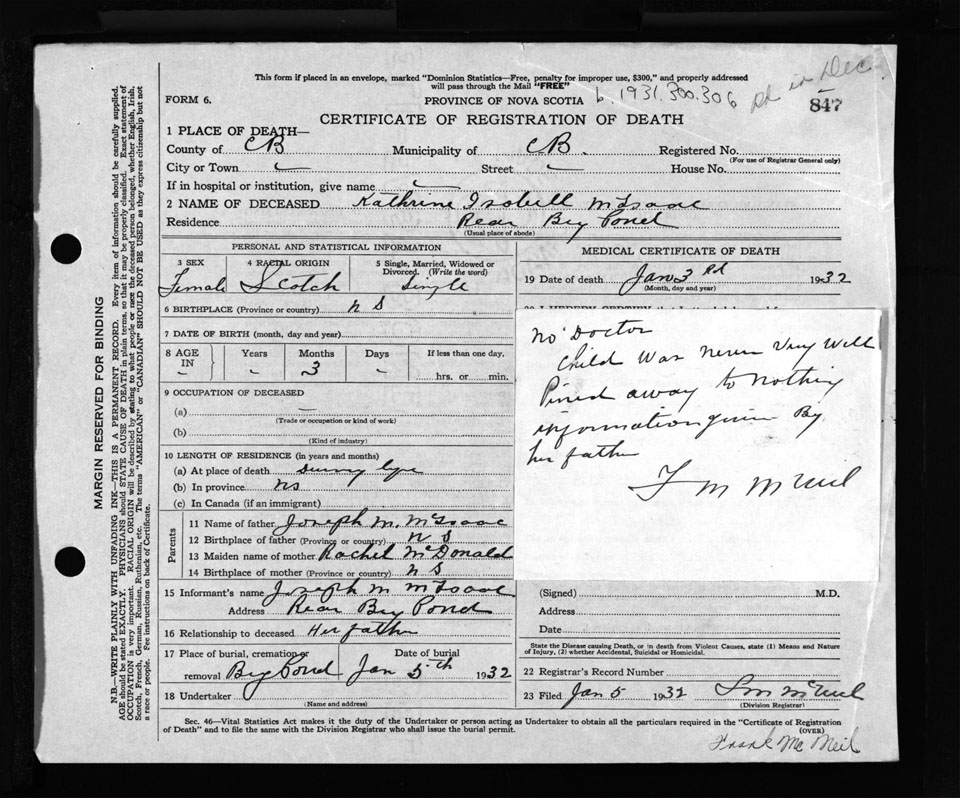 This form if placed in an envelope, marked "Dominion Statistics—Free, penalty for improper use, $300," and properly addressed
will pass through the Mail "FREE"
FORM 6.
PROVINCE OF NOVA SCOTIA
b. 1931.300.306
in Dec.
847
CERTIFICATE OF REGISTRATION OF DEATH
1 PLACE OF DEATH—
County of CB Municipality of CB. Registered No.
(For use of Registrar General only)
City or Town Street House No.
If in hospital or institution, give name
2 NAME OF DECEASED Kathrine Isobell McIsaac
Residence Rear Big Pond
(Usual place of abode)
PERSONAL AND STATISTICAL INFORMATION
3 SEX 4 RACIAL ORIGIN 5 Single, Married, Widowed or
Divorced. (Write the word)
Female Scotch Single
6 BIRTHPLACE (Province or country) N S
7 DATE OF BIRTH (month, day and year)
8 AGE IN Years Months Days If less than one day.
- - 3 - hrs. or min.
9 OCCUPATION OF DECEASED
(a) —
(Trade or occupation or kind of work)
(b)
(Kind of industry)
10 LENGTH OF RESIDENCE (in years and months)
(a) At place of death During Life
(b) In province NS
(c) In Canada (if an immigrant)
Parents
11 Name of father Joseph M. McIsaac
12 Birthplace of father (Province or country) N S
13 Maiden name of mother Rachel McDonald
14 Birthplace of mother (Province or country) N S
15 Informant's name Joseph M McIsaac
Address Rear Big Pond
16 Relationship to deceased Her father
17 Place of burial, cremation or Date of burial
removal Big Pond Jan 5th 1932
18 Undertaker
(Name and address)
MEDICAL CERTIFICATE OF DEATH
19 Date of death Jan 3rd 1932
(Month, day and year)
No Doctor
Child Was Never Very Well
Pined away to Nothing
information given By
her father
F M McNeil
(Signed) M.D.
Address
Date
State the Disease causing Death, or in death from Violent Causes, state (1) Means and Nature
of Injury, (2) whether Accidental, Suicidal or Homicidal.
22 Registrar's Record Number
23 Filed Jan 5 1932 F M McNeil
(Division Registrar)
Sec. 46—Vital Statistics Act makes it the duty of the Undertaker or person acting as Undertaker to obtain all the particulars required in the "Certificate of Registration
of Death" and to file the same with the Division Registrar who shall issue the burial permit.
(OVER)
Frank Mc Neil
MARGIN RESERVED FOR BINDING
N.B.—WRITE PLAINLY WITH UNFADING INK—THIS IS A PERMANENT RECORD. Every item of information should be carefully supplied.
AGE should be stated EXACTLY. PHYSICIANS should STATE CAUSE OF DEATH in plain terms, so that it may be properly classified. Exact statement of
OCCUPATION is very important. RACIAL ORIGIN will be described by stating to what people or race the deceased person belonged, whether English, Irish,
Scotch, French, German, Russian, Ruthenian, etc. The terms "AMERICAN" or "CANADIAN" SHOULD NOT BE USED as they express citizenship but not
a race or people. See instructions on back of Certificate.